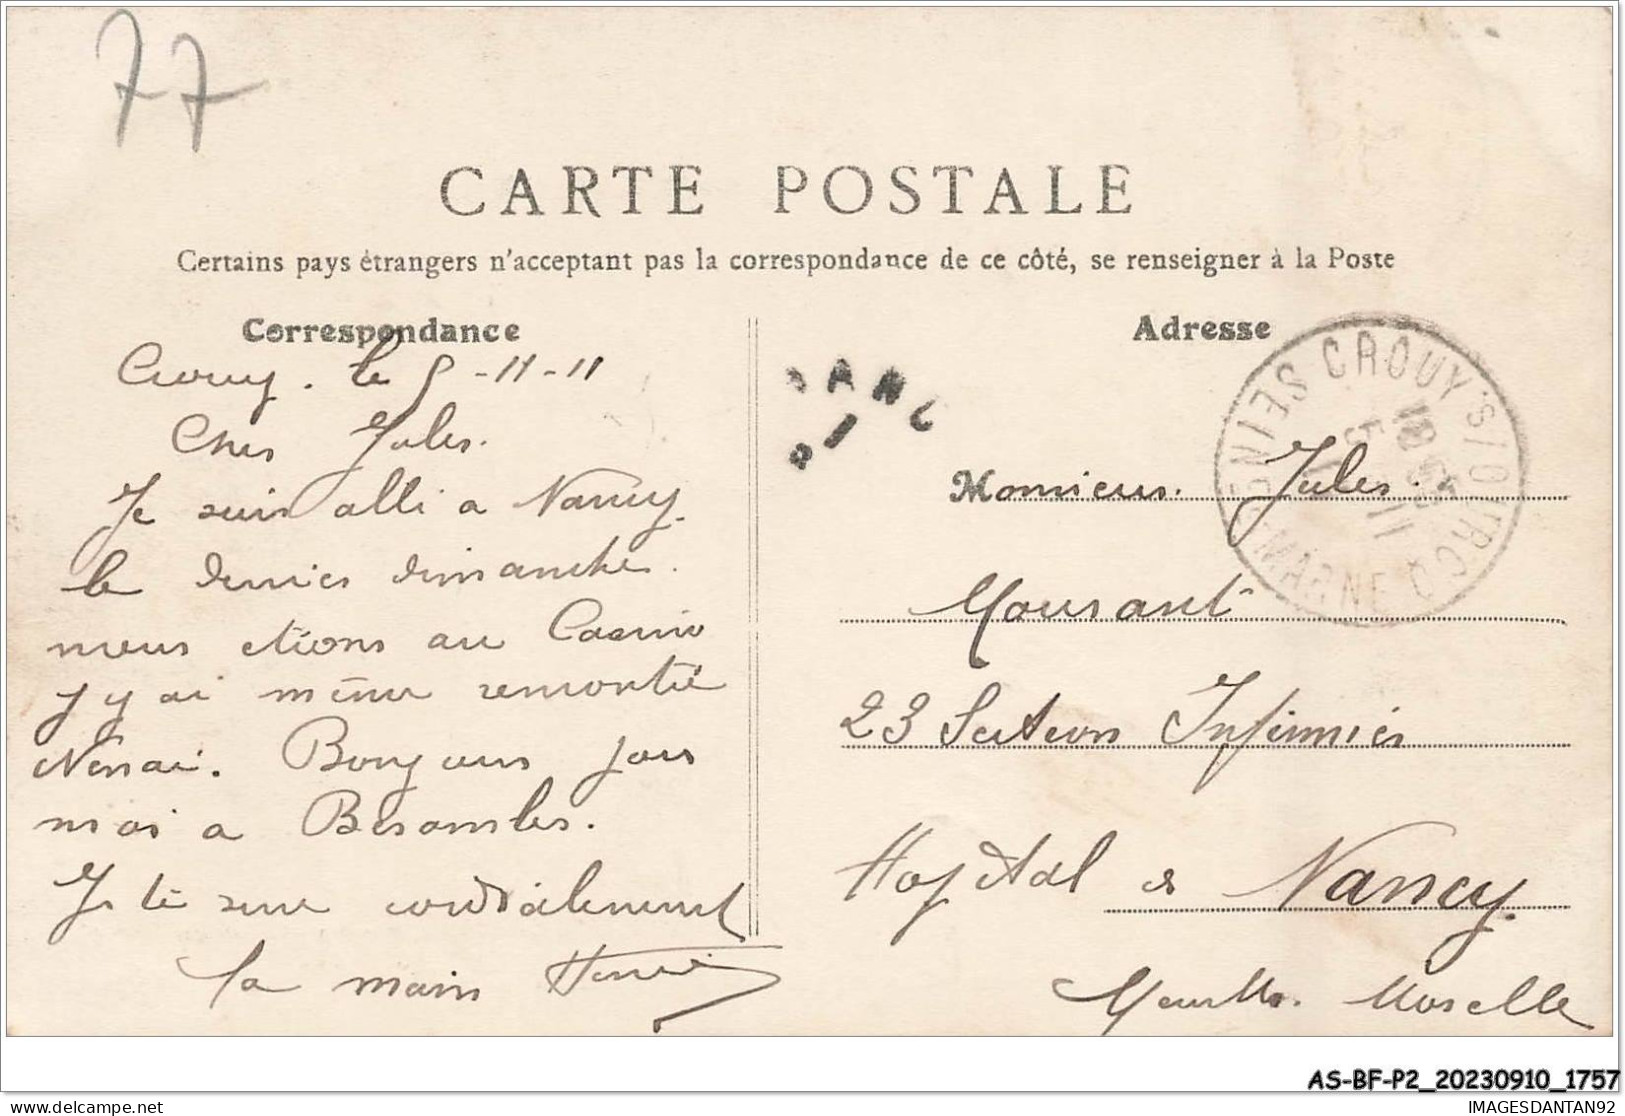 77
CARTE POSTALE
Certains pays étrangers n'acceptant pas la correspondance de ce côté, se renseigner à la Poste
Correspondance
Crouy. le 5-11-11
Cher Jules.
Je suis alli a Nancy.
le dernier dimanche.
nous étions au Casino
j y ai même remontré
Bonjour pour
moi a
Je te serre cordialement
la main Henri
Adresse
CROUY S/OURCQ
SEINE-MARNE
18
5 - 11
11
Monsieur. Jules.
Moursant
23 Section Infirmier
Hopital de Nancy.
Meurthe. Moselle
AS-BF-P2_20230910_1757
delcampe.net
IMAGESDANTAN92